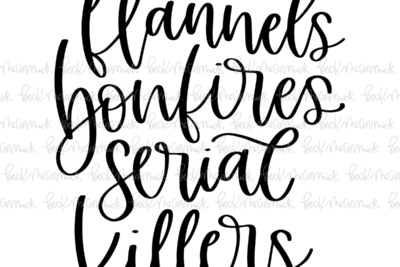 flannels
bonfires
serial
killers